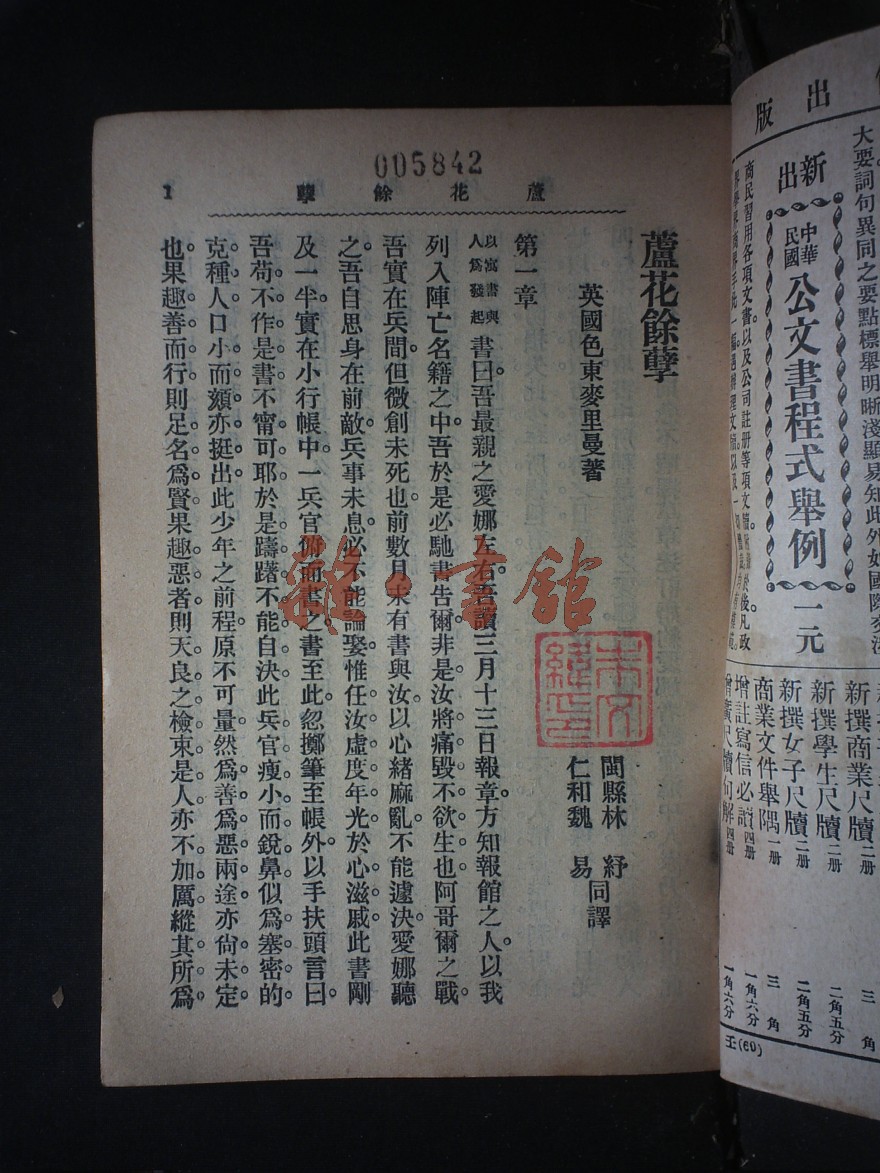 005842
蘆花餘孽 1
蘆花餘孽
英國色東麥里曼著
閩縣林 紓
仁和魏 易
同譯
第一章
以寫書與人爲發起 書曰。吾最親之愛娜左右。吾讀三月十三日報章。方知報館之人。以我
列入陣亡名籍之中。吾於是必馳書告爾。非是汝將痛毀不欲生也。阿哥爾之戰。
吾實在兵間。但微創未死也。前數月未有書與汝。以心緒麻亂。不能遽決。愛娜聽
之。吾自思身在前敵。兵事未息。必不能論娶。惟任汝虛度年光。於心滋戚。此書剛
及一半。實在小行帳中。一兵官俯而書之。書至此。忽擲筆至帳外。以手扶頭言曰。
吾苟不作是書。不甯可耶。於是躊躇不能自決。此兵官瘦小而銳鼻。似爲塞密的
克種人。口小而頦亦挺出。此少年之前程。原不可量。然爲善爲惡兩途。亦尙未定
也。果趣善而行。則足名爲賢。果趣惡者。則天良之檢束。是人亦不加厲。縱其所爲。
雜·書館
出版
大要詞句異同之要點標舉明晰淺顯易知此外如國際
新出
中華民國 公文書程式舉例 一元
商民習用各項文書以及公司註册等項文牘
新撰商業尺牘 二册 三角
新撰學生尺牘 二册 二角五分
新撰女子尺牘 二册 二角五分
商業文件舉隅 一册 三角
增註寫信必讀 四册 一角六分
增廣尺牘句解 四册 一角六分
王(69)